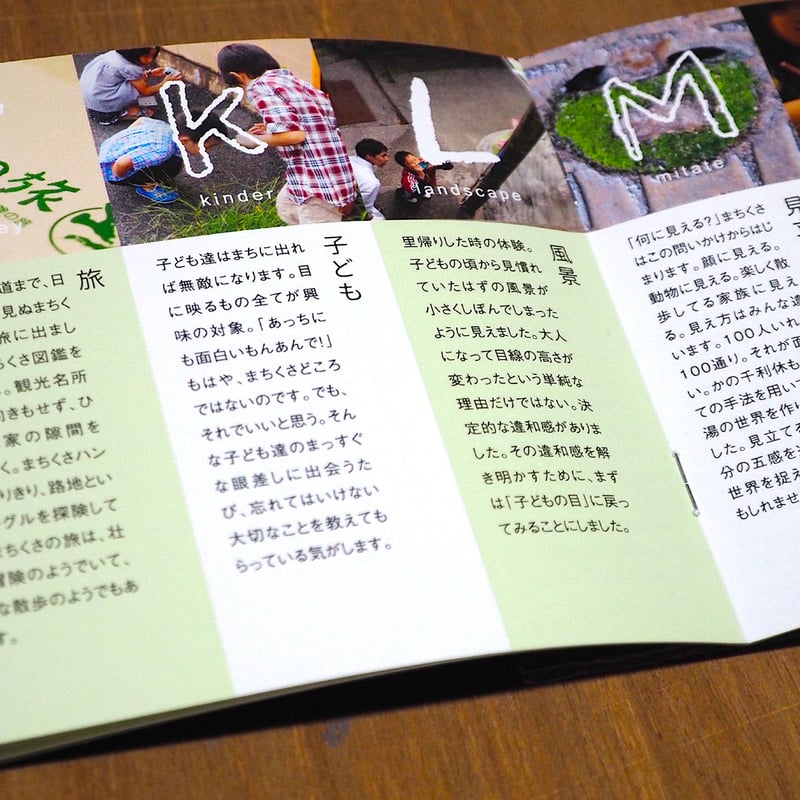 の旅
旅
道まで、日
見ぬまちく
旅に出まし
ちくさ図鑑を
。観光名所
向きもせず、ひ
家の隙間を
く。まちくさハン
りきり、路地とい
ングルを探険して
まちくさの旅は、壮
冒険のようでいて、
な散歩のようでもあ
す。
K
kinder
子ども
子ども達はまちに出れ
ば無敵になります。目
に映るもの全てが興
味の対象。「あっちに
も面白いもんあんで!」
もはや、まちくさどころ
ではないのです。でも、
それでいいと思う。そん
な子ども達のまっすぐ
な眼差しに出会うた
び、忘れてはいけない
大切なことを教えても
らっている気がします。
L
landscape
風景
里帰りした時の体験。
子どもの頃から見慣れ
ていたはずの風景が
小さくしぼんでしまった
ように見えました。大人
になって目線の高さが
変わったという単純な
理由だけではない。決
定的な違和感がありま
した。その違和感を解
き明かすために、まず
は「子どもの目」に戻っ
てみることにしました。
M
mitate
見
「何に見える?」まちくさ
はこの問いかけからはじ
まります。顔に見える。
動物に見える。楽しく散
歩してる家族に見え
る。見え方はみんな違
います。100人いれ
100通り。それが面
い。かの千利休も
ての手法を用い
湯の世界を作り
した。見立てる
分の五感を
世界を捉え
もしれませ